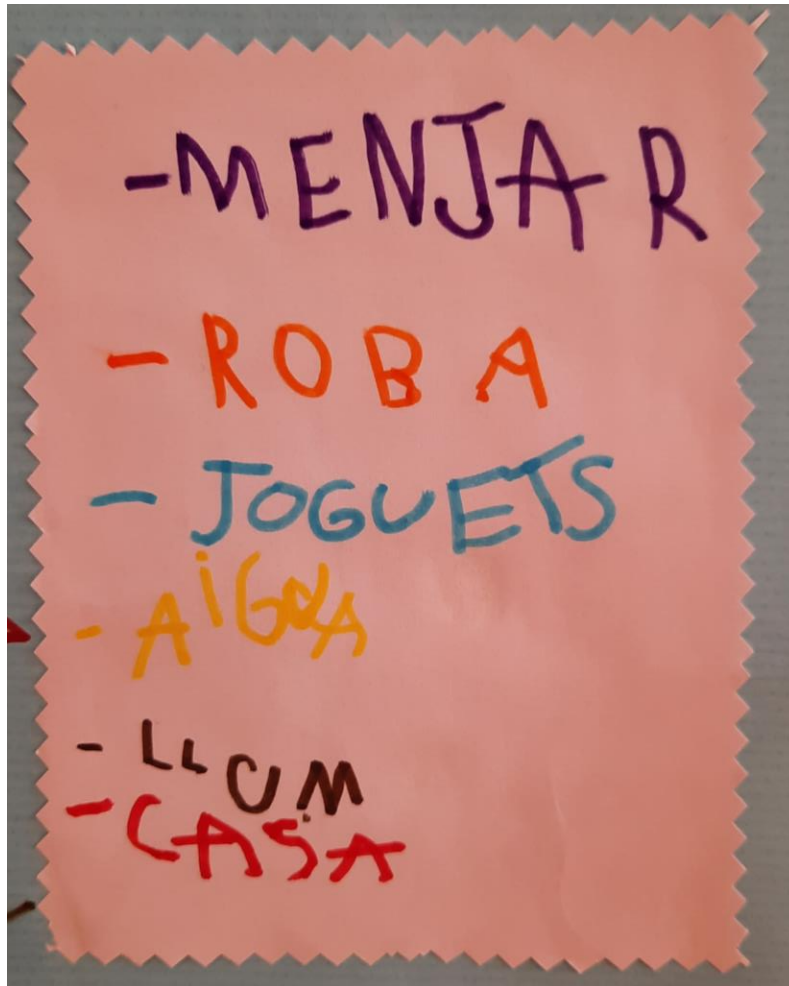 -MENJAR
- ROBA
- JOGUETS
- AiGUA
- LLUM
- CASA